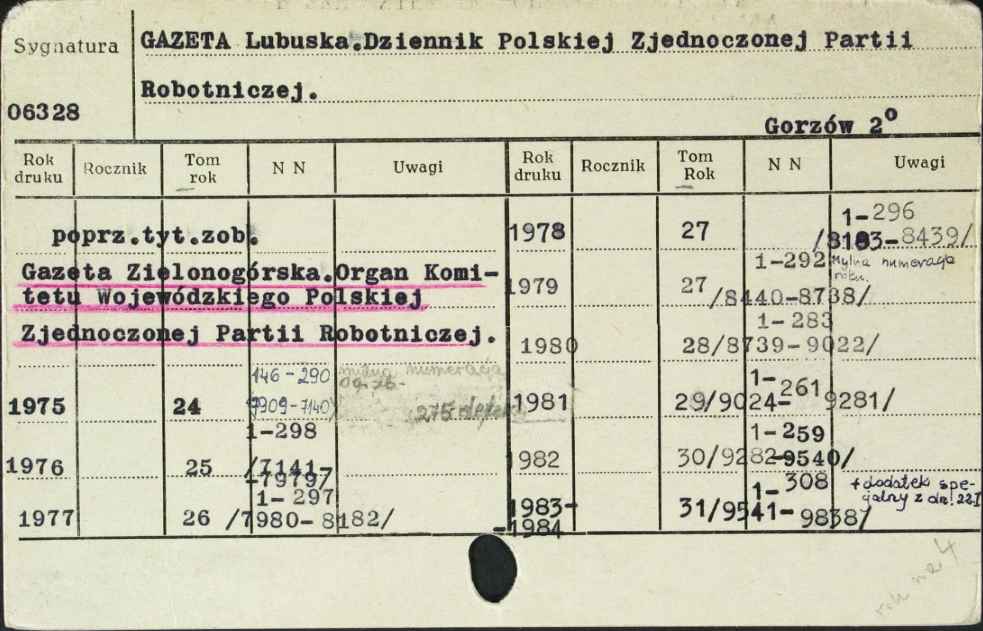 Sygnatura
06328
GAZETA Lubuska.Dziennik Polskiej Zjednoczonej Partii
Robotniczej.
Gorzów 2º
Rok druku Rocznik Tom rok N N Uwagi Rok druku Rocznik Tom Rok N N Uwagi
poprz.tyt.zob.
Gazeta Zielonogórska.Organ Komi-
tetu Wojewódzkiego Polskiej
Zjednoczonej Partii Robotniczej.
1975 24 146-290
mylna numeracja
1976 25 1-298
/7141-
-7979/
1977 26 1-297
/7980-8182/
1978 27 1-296
/8183-8439/
1979 27 1-292 Mylna numeracja
roku.
/8440-8738/
1980 28 1-283
/8739-9022/
1981 29 1-261
/9024-9281/
1982 30 1-259
/9282-9540/
1983- 31 1-308 + dodatek spe-
cjalny z dn. 22.I
-1984 /9541-9838/